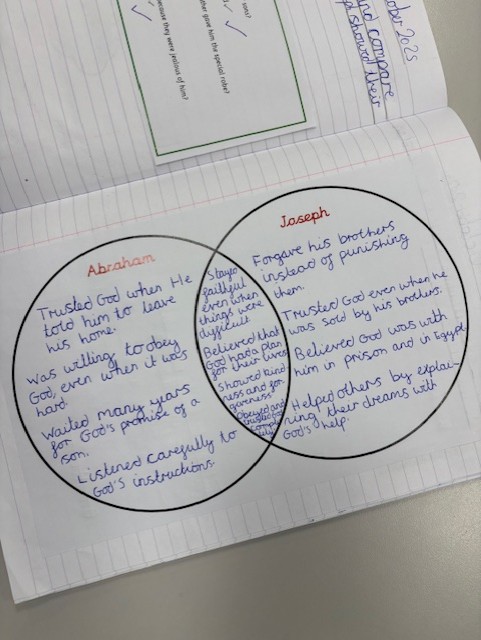 ober 2025
and compare
showed their
sons?
ther give him the special robe?
ecause they were jealous of him?
Abraham
Trusted God when He
told him to leave
his home.
Was willing to obey
God, even when it was
hard.
Waited many years
for God's promise of a
son.
Listened carefully to
God's instructions.
Stayed
faithful
even when
things were
difficult
Believed that
God had a plan
for their lives
Showed kind-
ness and for-
giveness
Obeyed and
trusted God
Joseph
Forgave his brothers
instead of punishing
them.
Trusted God even when he
was sold by his brothers.
Believed God was with
him in prison and in Egypt.
Helped others by explai-
ning their dreams with
God's help.